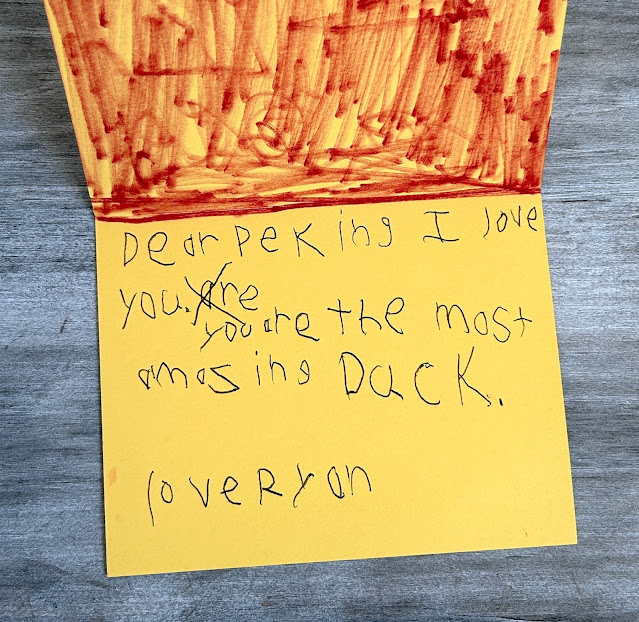 Dear peKing I love
you. are
you are the most
amosing DucK.
love Ryan